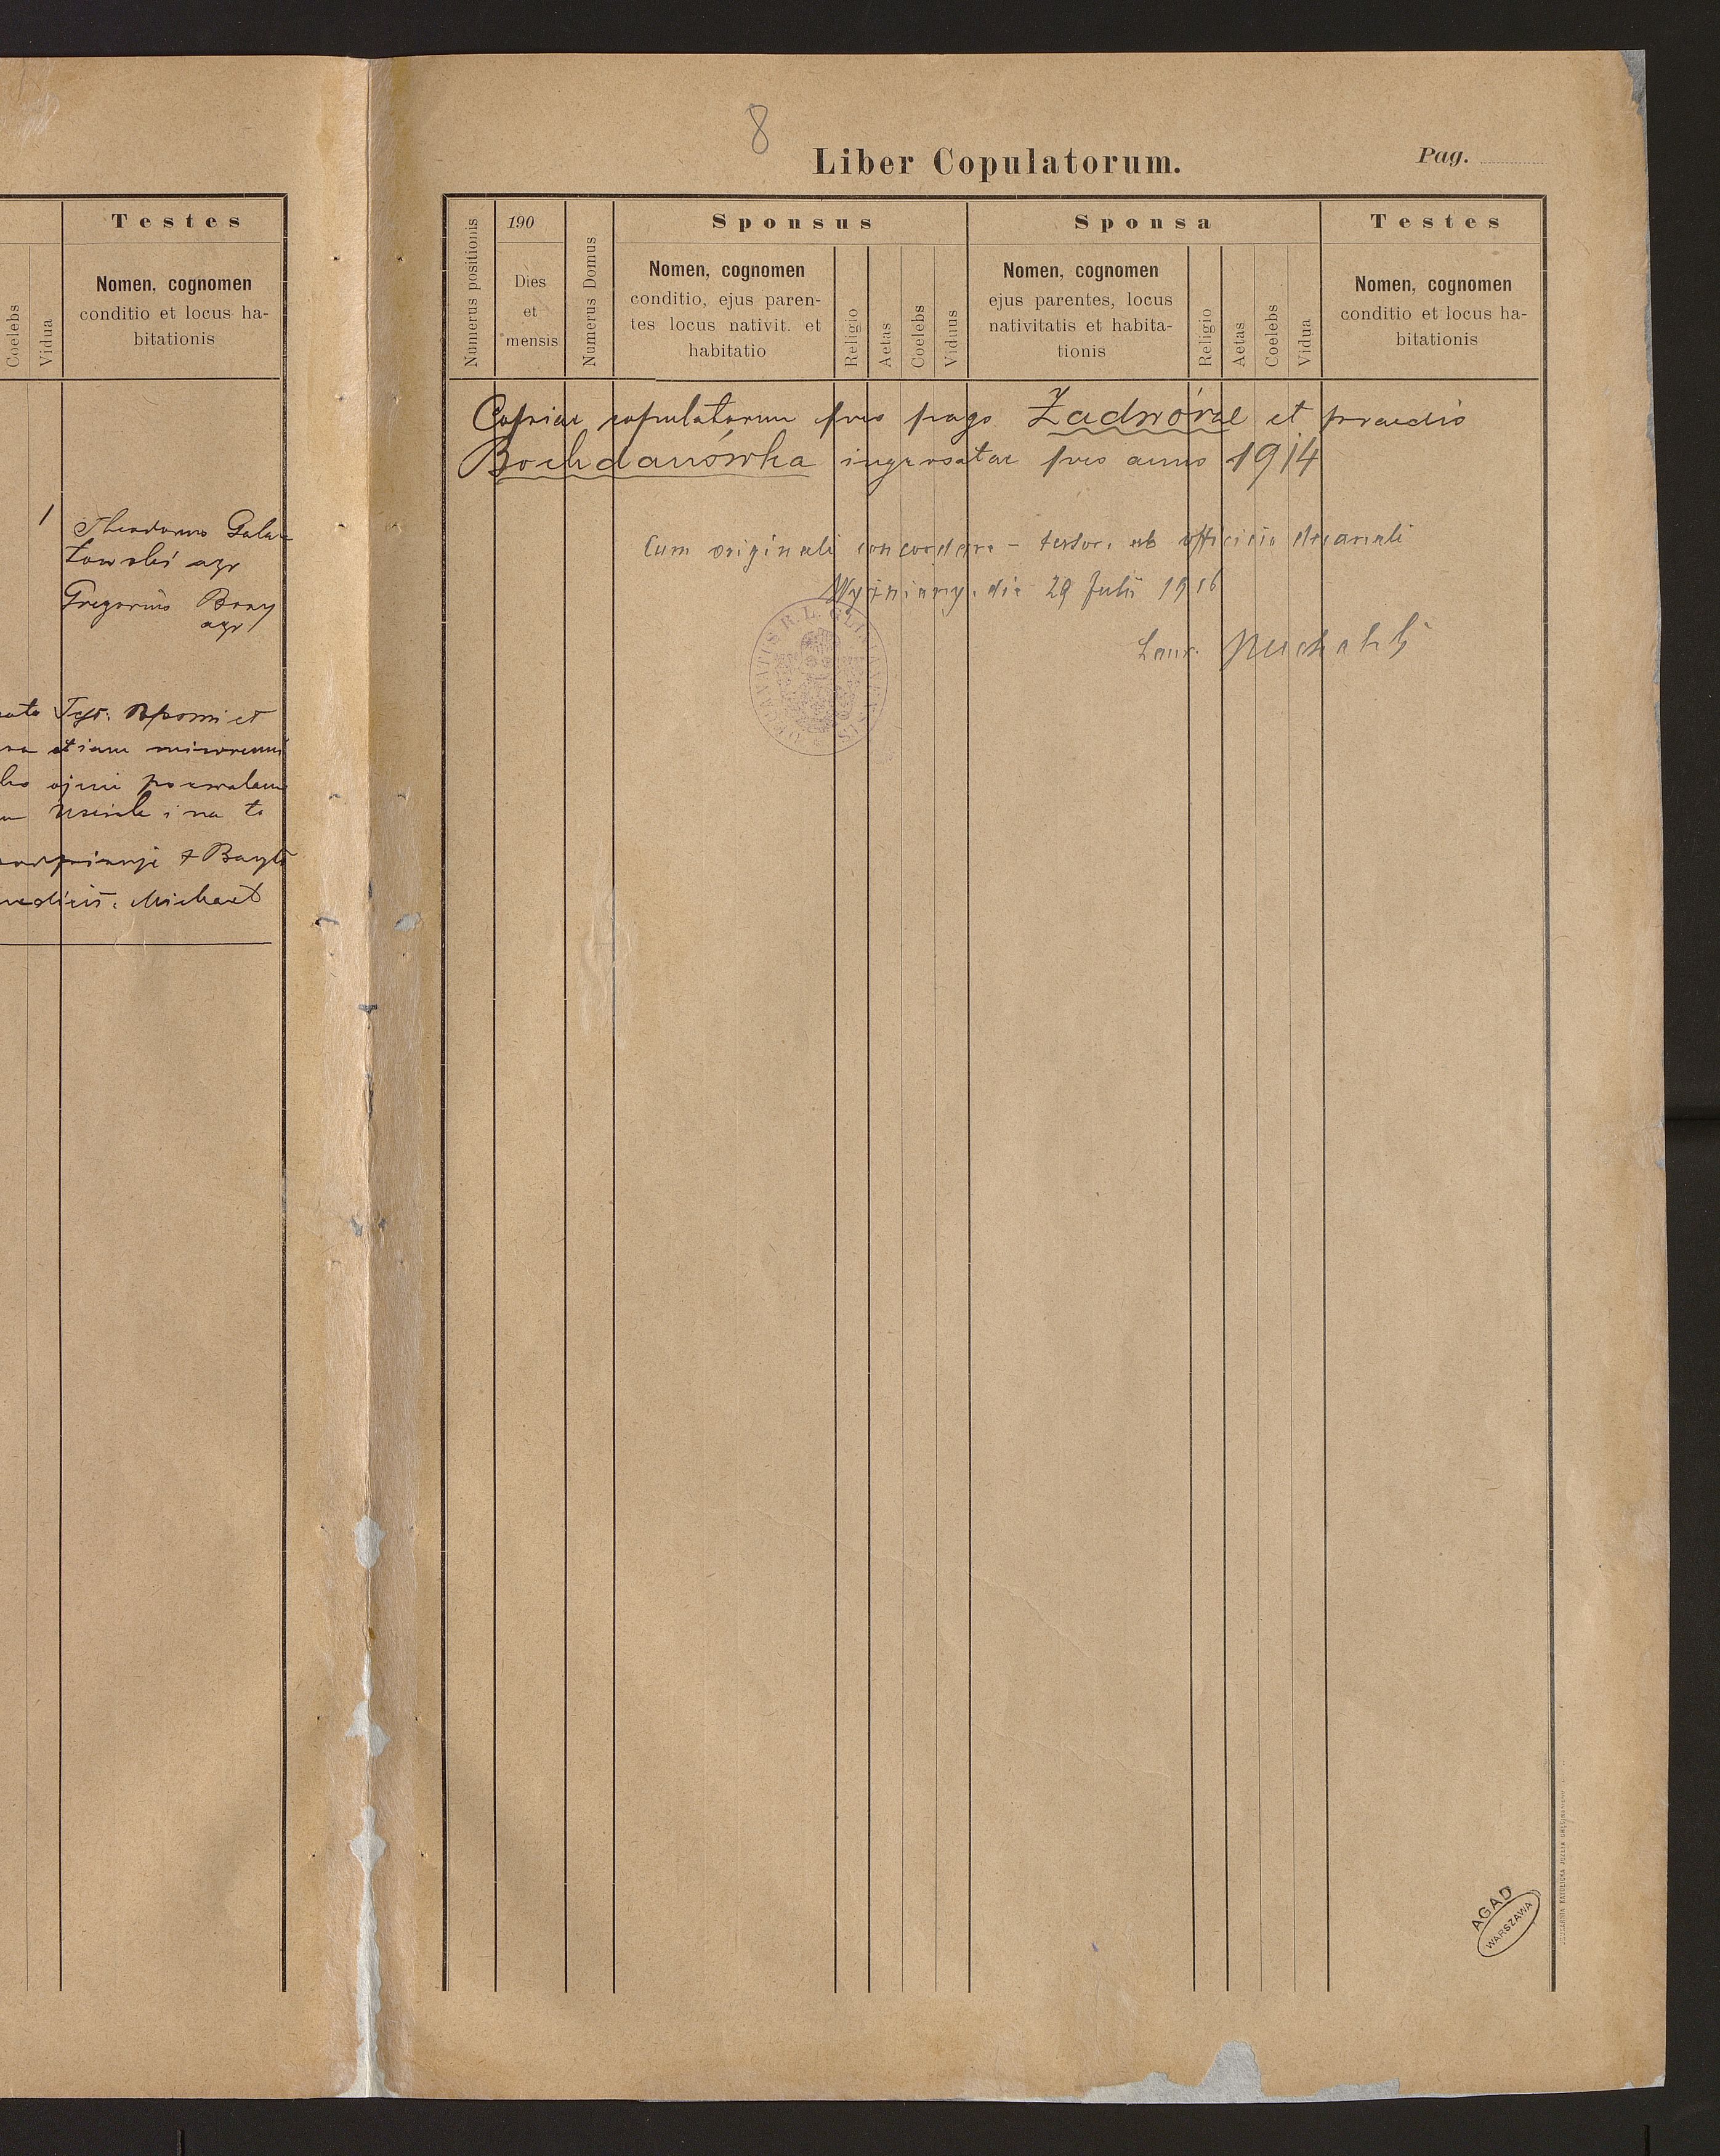 Testes
Coelebs
Vidua
Nomen, cognomen
conditio et locus ha-
bitationis
1
Theodorus Gala-
towski agr
Gregorius
agr
Test. et
etiam
i na to
Michael
8
Liber Copulatorum.
Pag.
Numerus positionis
190
Dies
et
mensis
Numerus Domus
Sponsus
Nomen, cognomen
conditio, ejus paren-
tes locus nativit. et
habitatio
Religio
Aetas
Coelebs
Viduus
Sponsa
Nomen, cognomen
ejus parentes, locus
nativitatis et habita-
tionis
Religio
Aetas
Coelebs
Vidua
Testes
Nomen, cognomen
conditio et locus ha-
bitationis
Copiae copulatorum pro pago Zadwórze et praedio
Bochdanówka ingrosatae pro anno 1914
Cum originali concordare - testor. ab officio decanali
Wyżniany. die 29 Julii 1916
Laur.
AGAD
WARSZAWA